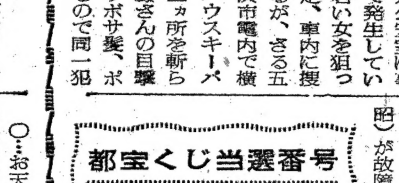 で発生してい
若い女を狙っ
、車内に捜
るが、さる五
浜市電内で横
ウスキーパ
ヵ所を斬ら
さんの目撃
ボサ髪、ポ
ので同一犯
昭）が故障
都宝くじ当選番号
〇…お天